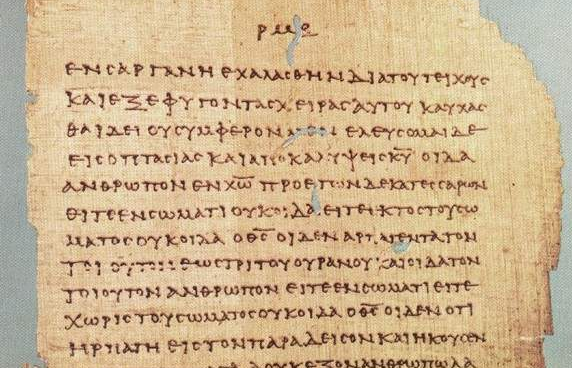 ΡΜΕ
ΕΝ CΑΡΓΑΝΗ ΕΧΑΛΑCΘΗΝ ΔΙΑ ΤΟΥ ΤΕΙΧΟΥC
ΚΑΙ ΕΞΕΦΥΓΟΝ ΤΑC ΧΕΙΡΑC ΑΥΤΟΥ ΚΑΥΧΑC
ΘΑΙ ΔΕΙ ΟΥ CΥΜΦΕΡΟΝ ΕΛΕΥCΟΜΑΙ ΔΕ
ΕΙC ΟΠΤΑCΙΑC ΚΑΙ ΑΠΟΚΑΛΥΨΕΙC Κ̅Υ̅ ΟΙΔΑ
ΑΝΘΡΩΠΟΝ ΕΝ Χ̅Ω̅ ΠΡΟ ΕΤΩΝ ΔΕΚΑΤΕCCΑΡΩΝ
ΕΙΤΕ ΕΝ CΩΜΑΤΙ ΟΥΚ ΟΙΔΑ ΕΙΤΕ ΕΚΤΟC ΤΟΥ CΩ
ΜΑΤΟC ΟΥΚ ΟΙΔΑ Ο Θ̅C̅ ΟΙΔΕΝ ΑΡΠΑΓΕΝΤΑ ΤΟΝ
ΕΩC ΤΡΙΤΟΥ ΟΥΡΑΝΟΥ ΚΑΙ ΟΙΔΑ ΤΟΝ
ΤΟΙΟΥΤΟΝ ΑΝΘΡΩΠΟΝ ΕΙΤΕ ΕΝ CΩΜΑΤΙ ΕΙΤΕ
ΧΩΡΙC ΤΟΥ CΩΜΑΤΟC ΟΥΚ ΟΙΔΑ Ο Θ̅C̅ ΟΙΔΕΝ ΟΤΙ
ΗΡΠΑΓΗ ΕΙC ΤΟΝ ΠΑΡΑΔΕΙCΟΝ ΚΑΙ ΗΚΟΥCΕΝ
ΟΥΚ ΕΞΟΝ ΑΝΘΡΩΠΩ ΛΑ